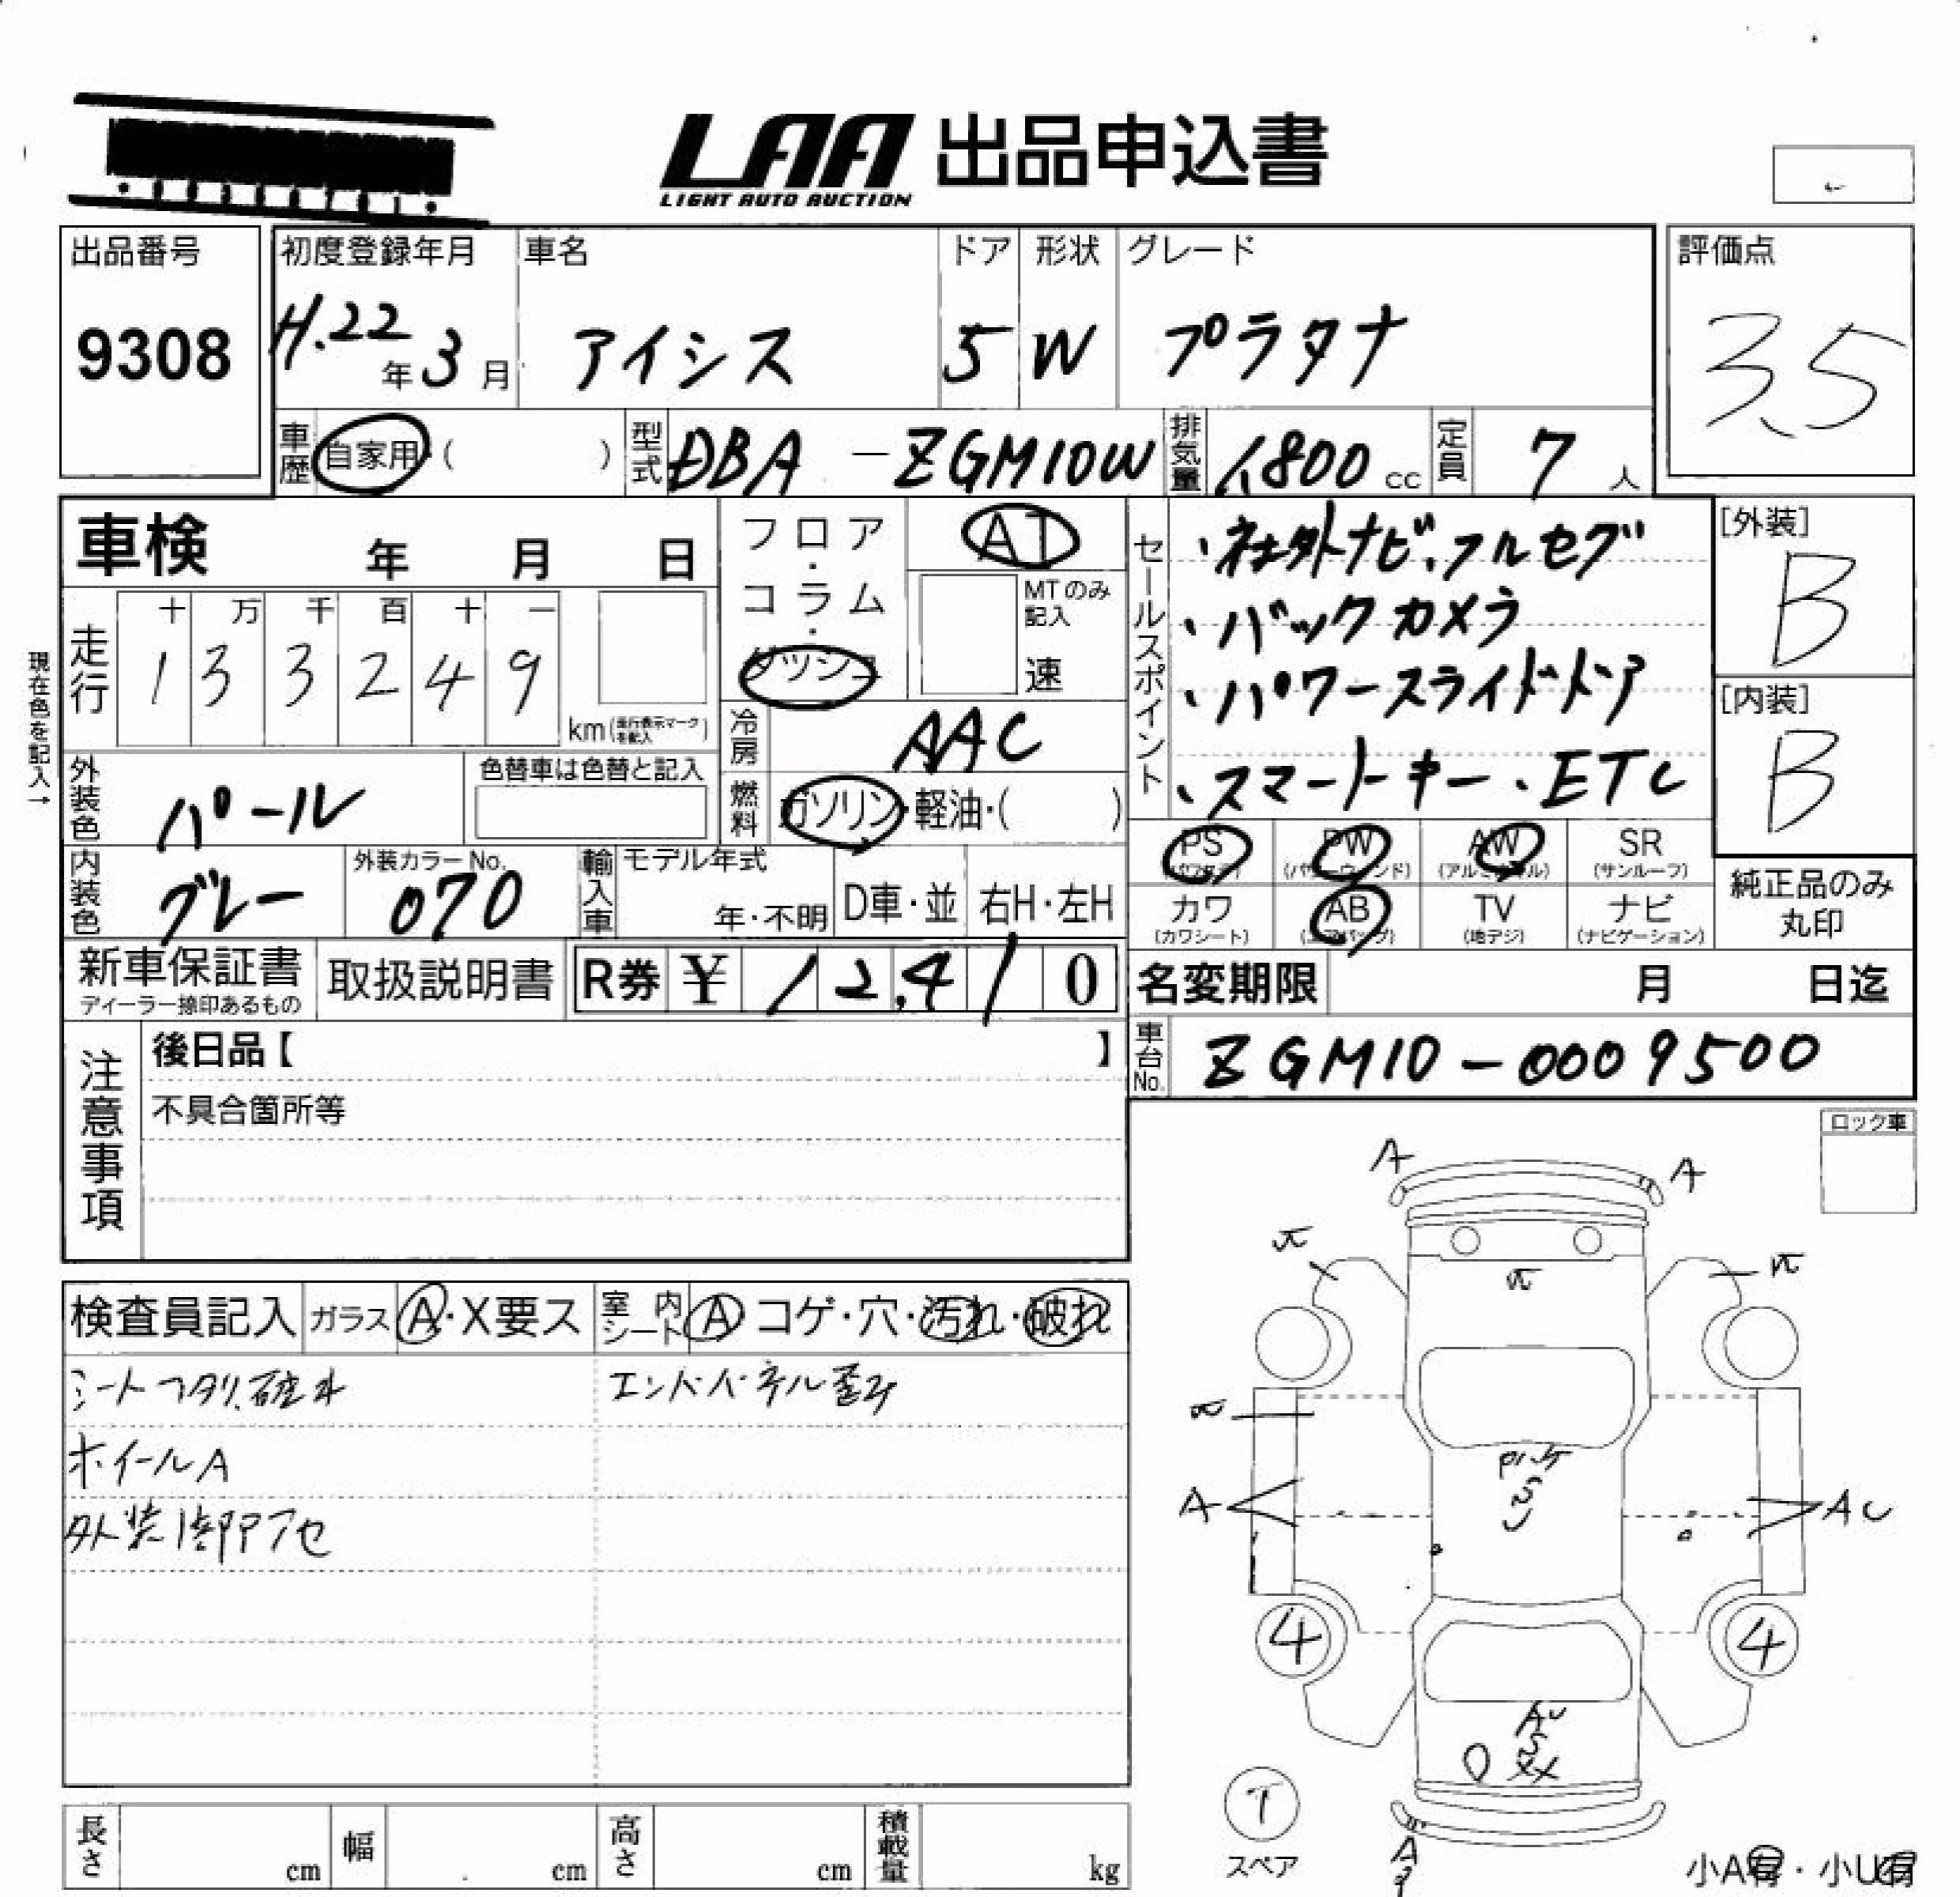 LAA 出品申込書
LIGHT AUTO AUCTION
出品番号
9308
初度登録年月
H.22年3月
車名
アイシス
ドア
5
形状
W
グレード
プラタナ
評価点
3.5
車歴
自家用・( )
型式
DBA-ZGM10W
排気量
1800cc
定員
7人
車検 年 月 日
フロア・コラム・ダッシュ
AT
MTのみ記入
速
セールスポイント
・社外ナビ、フルセグ
・バックカメラ
・パワースライドドア
・スマートキー・ETC
[外装]
B
[内装]
B
現在色を記入→
走行
十 万 千 百 十 一
1 3 3 2 4 9
km(走行表示マークを記入)
冷房
AAC
燃料
ガソリン・軽油・( )
外装色
パール
色替車は色替と記入
内装色
グレー
外装カラーNo.
070
輸入車
モデル年式
年・不明
D車・並
右H・左H
PS
PW
(パワーウィンド)
AW
(アルミホイル)
SR
(サンルーフ)
カワ
(カワシート)
AB
(エアバッグ)
TV
(地デジ)
ナビ
(ナビゲーション)
純正品のみ
丸印
新車保証書
ディーラー捺印あるもの
取扱説明書
R券 ¥ 12,410
名変期限 月 日迄
車台No.
ZGM10-0009500
注意事項
後日品【 】
不具合箇所等
ロック車
検査員記入
ガラス A・X要ス
室内シート A コゲ・穴・汚れ・破れ
シートフタリ、破れ
エンドパネル歪み
ホイールA
外装
A
A
A
AU
4
4
AU
S
XX
A
T
スペア
小A有・小U有
長さ cm
幅 cm
高さ cm
積載量 kg